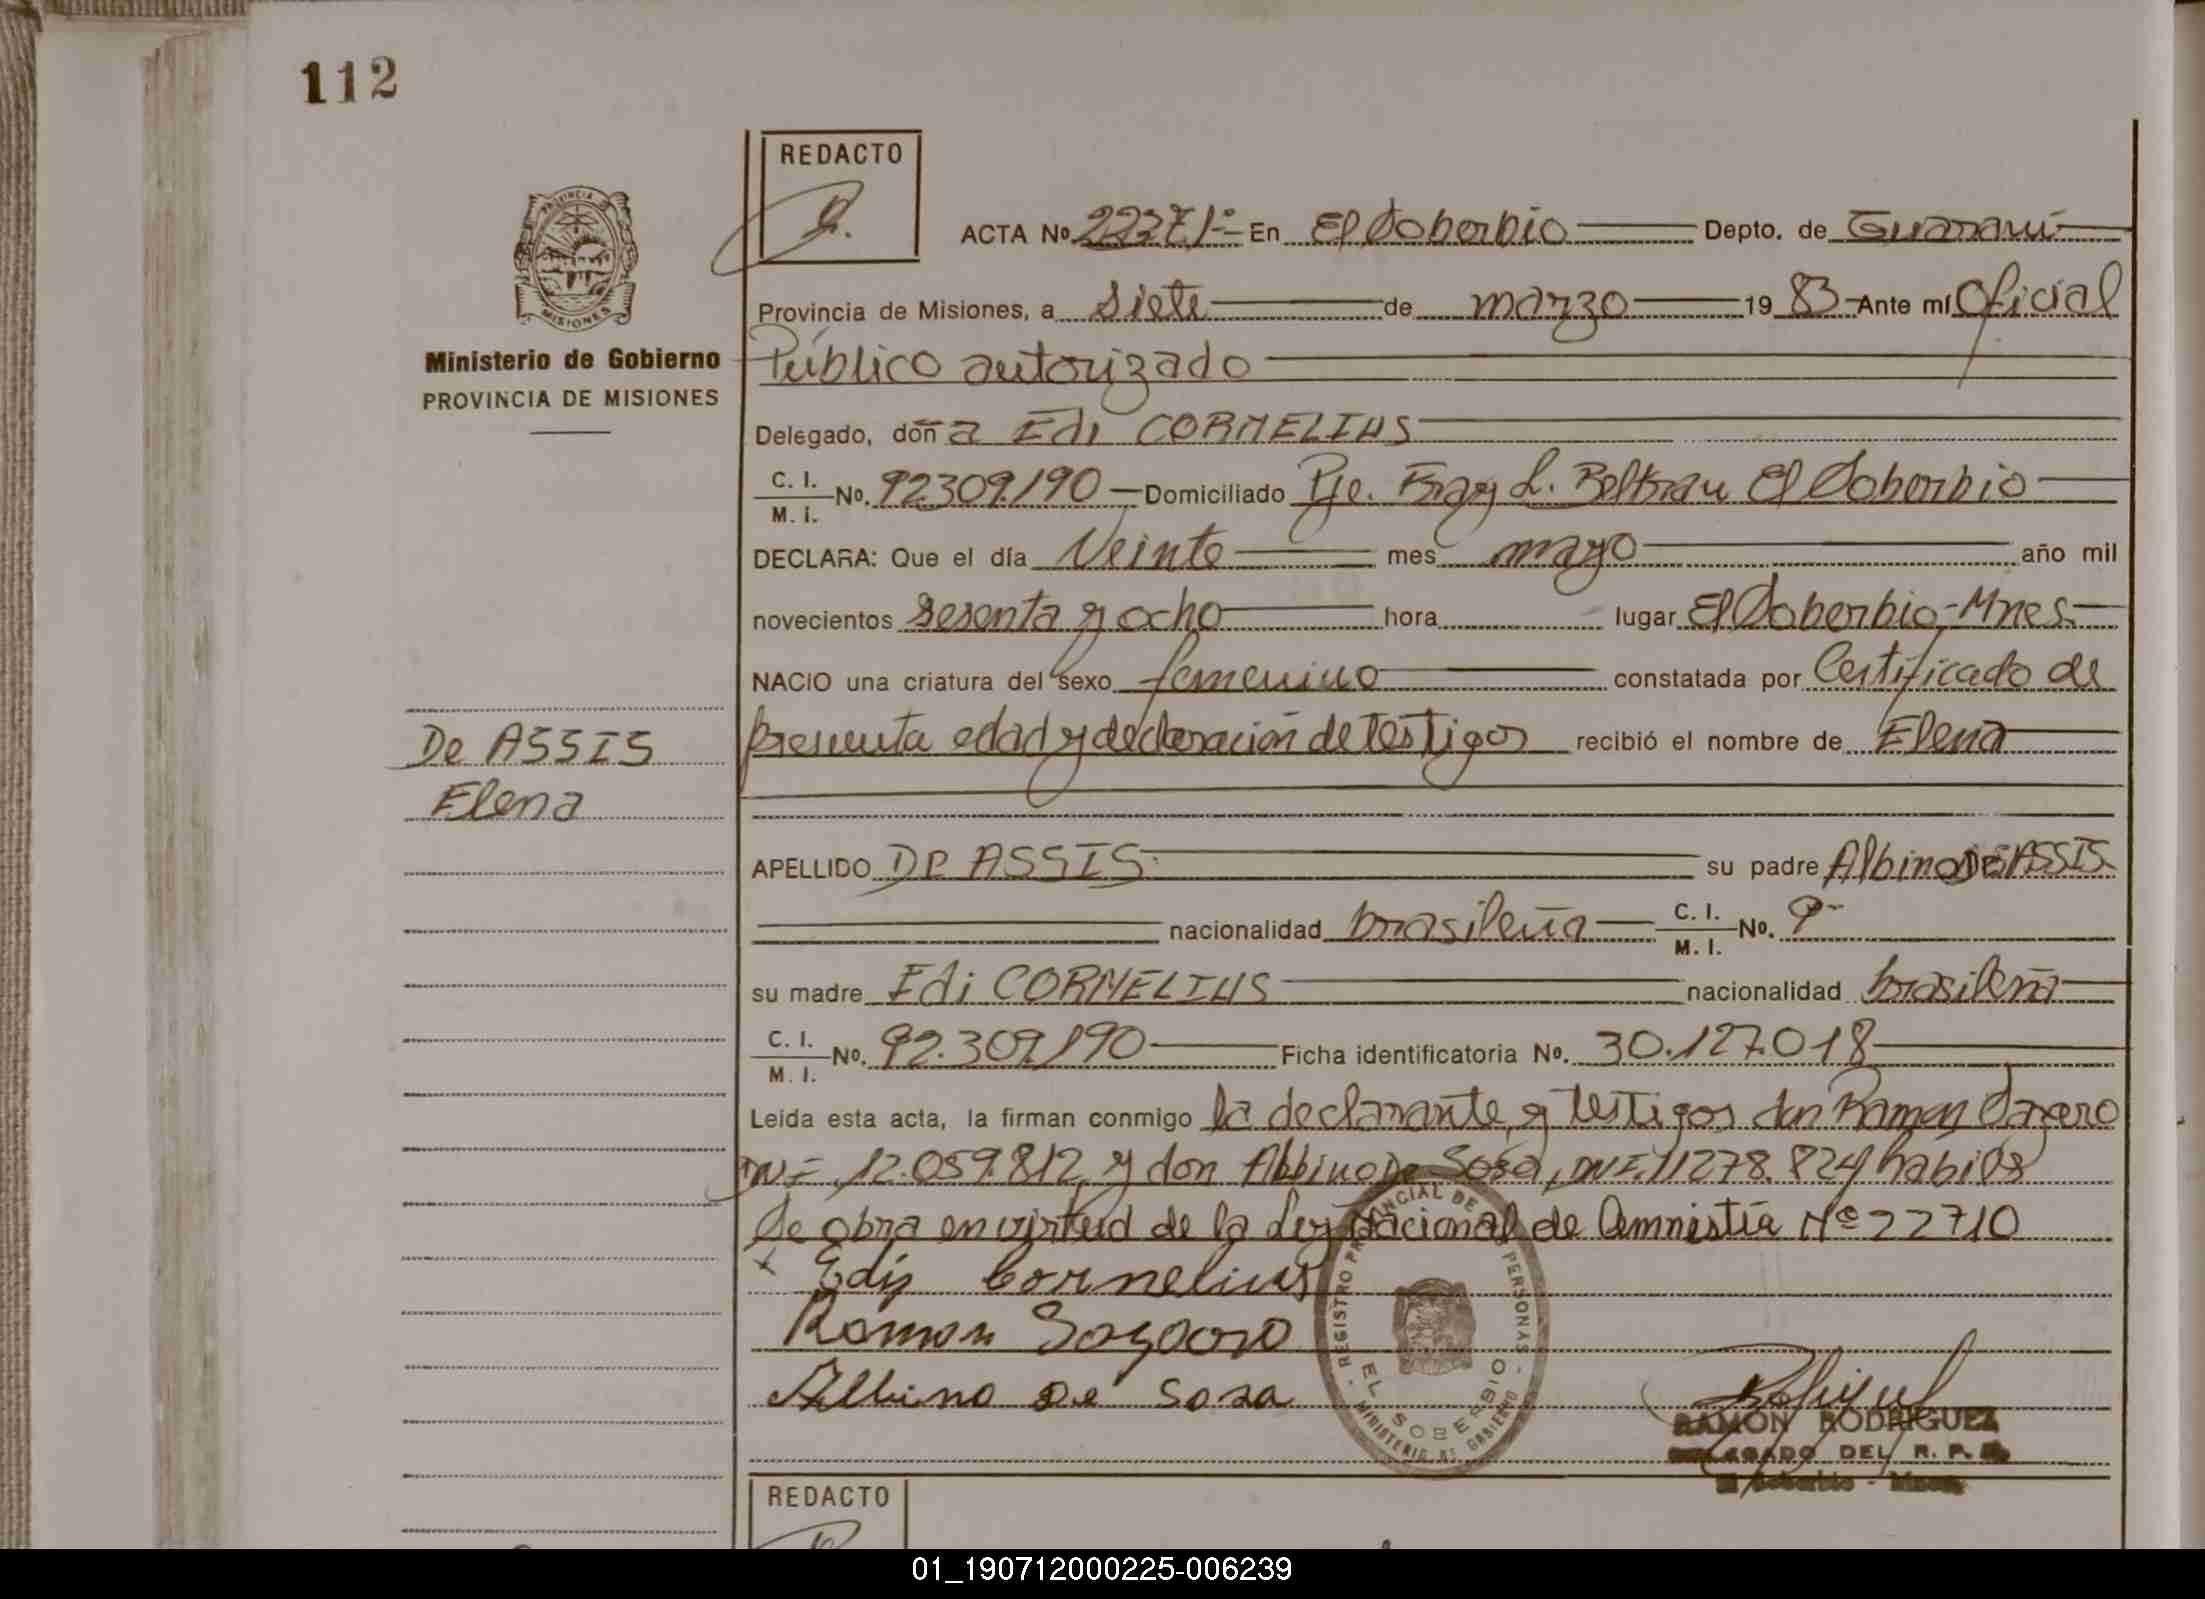 112
REDACTO
ACTA Nº 2237/- En El Soberbio Depto. de Guaraní
Provincia de Misiones, a siete de marzo 19 83 Ante mí Oficial
Ministerio de Gobierno
PROVINCIA DE MISIONES
Público autorizado
Delegado, don a Edi CORNELIUS
C. I.
M. I.
No. 92.309.190 Domiciliado Pje. Fray L. Beltrau El Soberbio
DECLARA: Que el día Veinte mes mayo año mil
novecientos sesenta y ocho hora lugar El Soberbio-Mnes.
NACIO una criatura del sexo femenino constatada por Certificado de
presunta edad y declaración de testigos recibió el nombre de Elena
De ASSIS
Elena
APELLIDO DE ASSIS. su padre Albino DE ASSIS.
nacionalidad brasileña C. I. M. I. No.
su madre Edi CORNELIUS nacionalidad brasileña
C. I.
M. I.
No. 92.309.190 Ficha identificatoria No. 30.127.018
Leida esta acta, la firman conmigo la declarante, y testigos don Ramon
DNI 12.059.812, y don Albino De Sosa, DNI. 11278.824 habiles
Se obra en virtud de la Ley Nacional de Amnistía Nº 22710
Edy Cornelius
Ramon
Albino De Sosa
REGISTRO PROVINCIAL DE PERSONAS
EL SOBERBIO
MINISTERIO DE GOBIERNO
RAMON RODRIGUEZ
DELEGADO DEL R. P.
El Soberbio - Mnes.
REDACTO
01_190712000225-006239